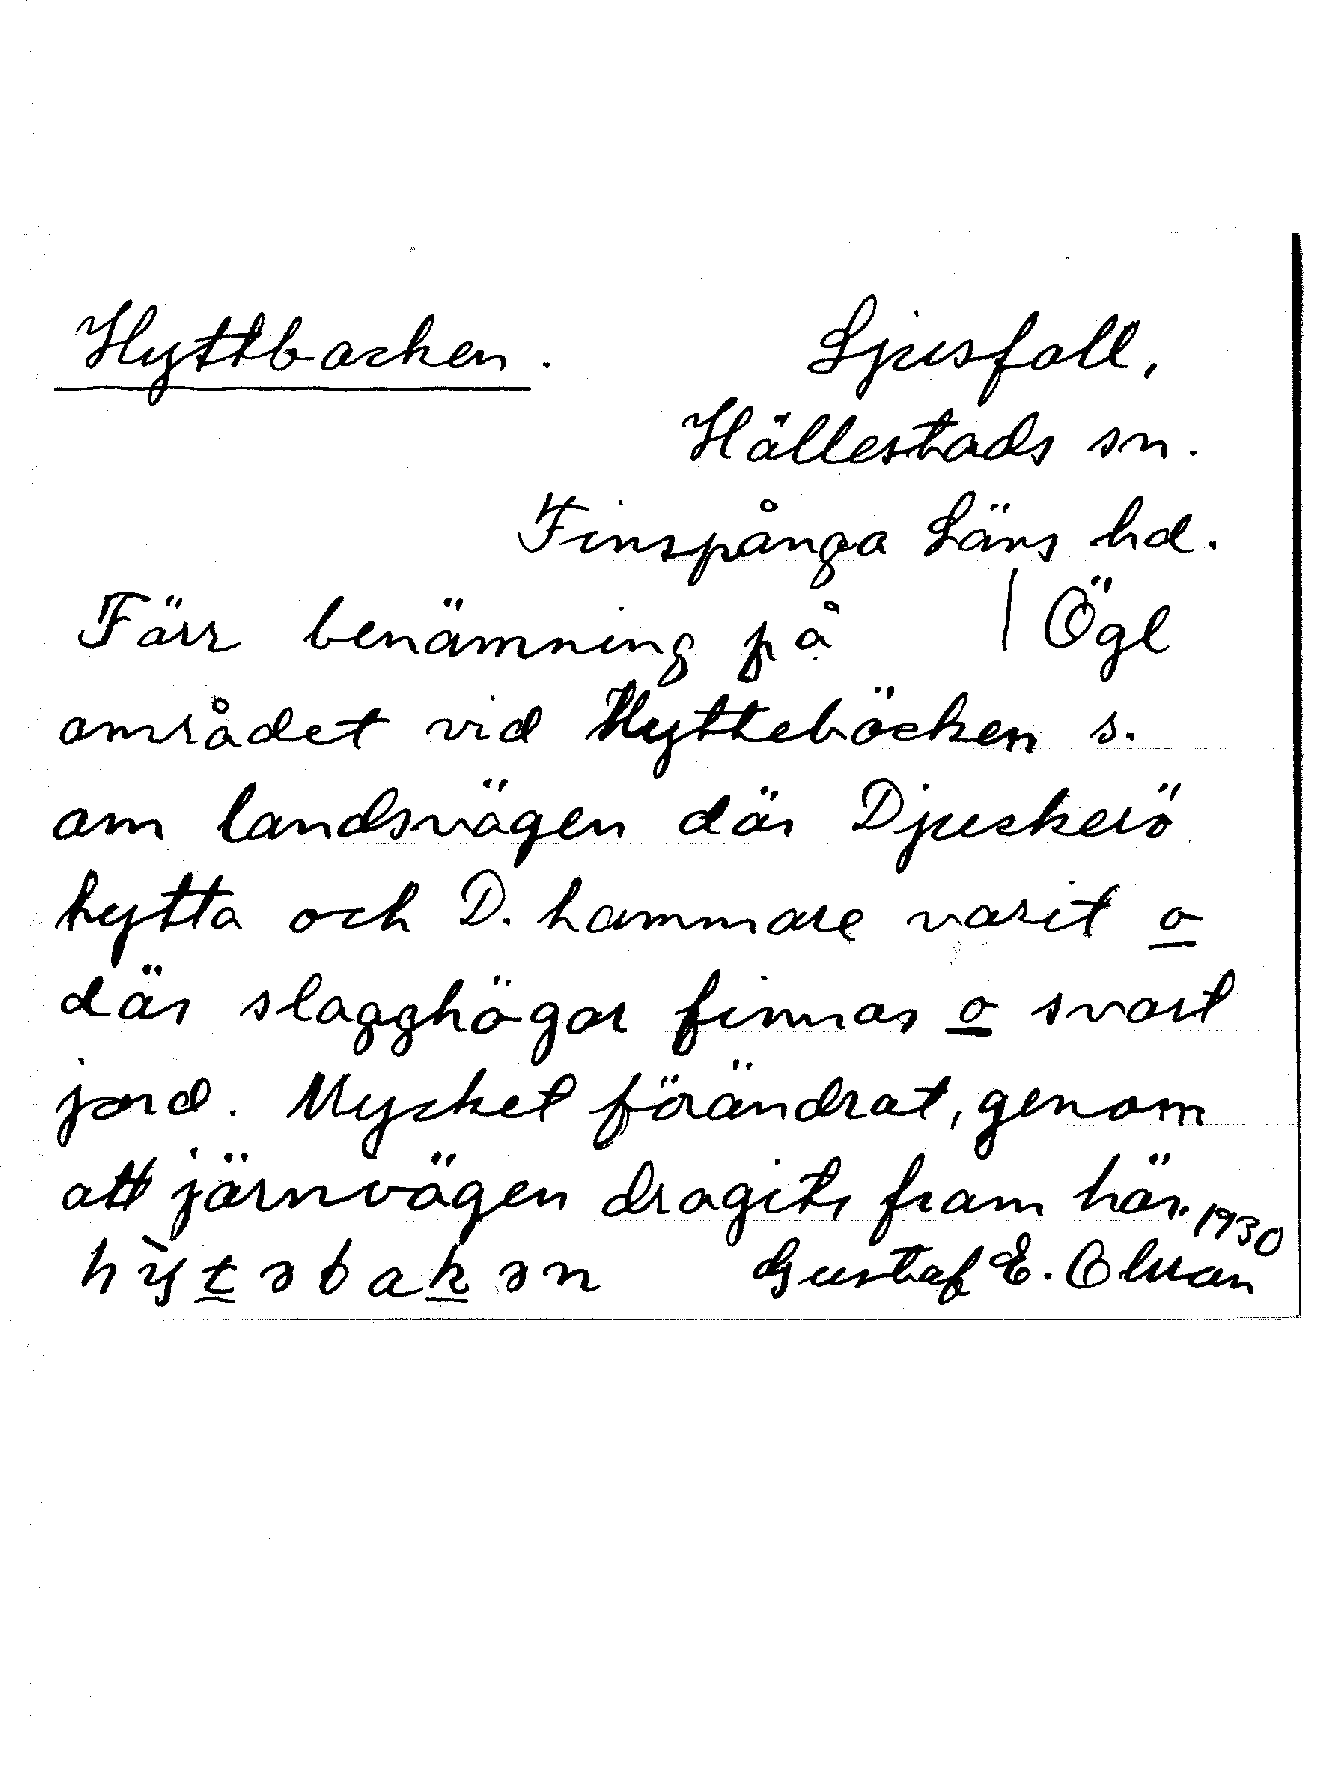 Hyttbacken. Ljusfall,
Hällestads sn.
Finspånga Läns hd.
Färr benämning på | Ögl
området vid Hyttebäcken s.
om landsvägen där Djuckerö
hytta och D. hammare varit o
där slagghögar finnas o svart
jord. Mycket förändrat, genom
att järnvägen dragits fram här. 1930
hỳtəbakən Gustaf E. Olsson